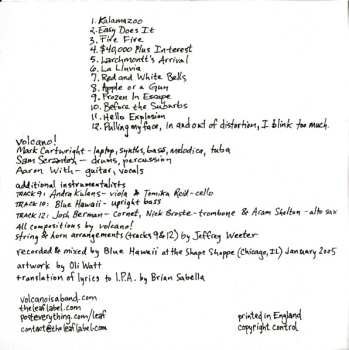 1. Kalamazoo
2. Easy Does It
3. Fire Fire
4. $40,000 Plus Interest
5. Larchmontt's Arrival
6. La Lluvia
7. Red and White Bells
8. Apple or a Gun
9. Frozen In Escape
10. Before the Suburbs
11. Hello Explosion
12. Pulling my face, In and out of distortion, I blink too much.
volcano!
Mark Cartwright - laptop, synths, bass, melodica, tuba
Sam Scranton - drums, percussion
Aaron With - guitar, vocals
additional instrumentalists
TRACK 9: Andra Kulans - viola & Tomika Reid - cello
TRACK 10: Blue Hawaii - upright bass
TRACK 12: Josh Berman - Cornet, Nick Broste - trombone & Aram Shelton - alto sax
All compositions by volcano!
string & horn arrangements (tracks 9 & 12) by Jeffrey Weeter
recorded & mixed by Blue Hawaii at the Shape Shoppe (Chicago, IL) January 2005
artwork by Oli Watt
translation of lyrics to I.P.A. by Brian Sabella
volcanoisaband.com
theleaflabel.com
posteverything.com/leaf
contact@theleaflabel.com
printed in England
copyright control